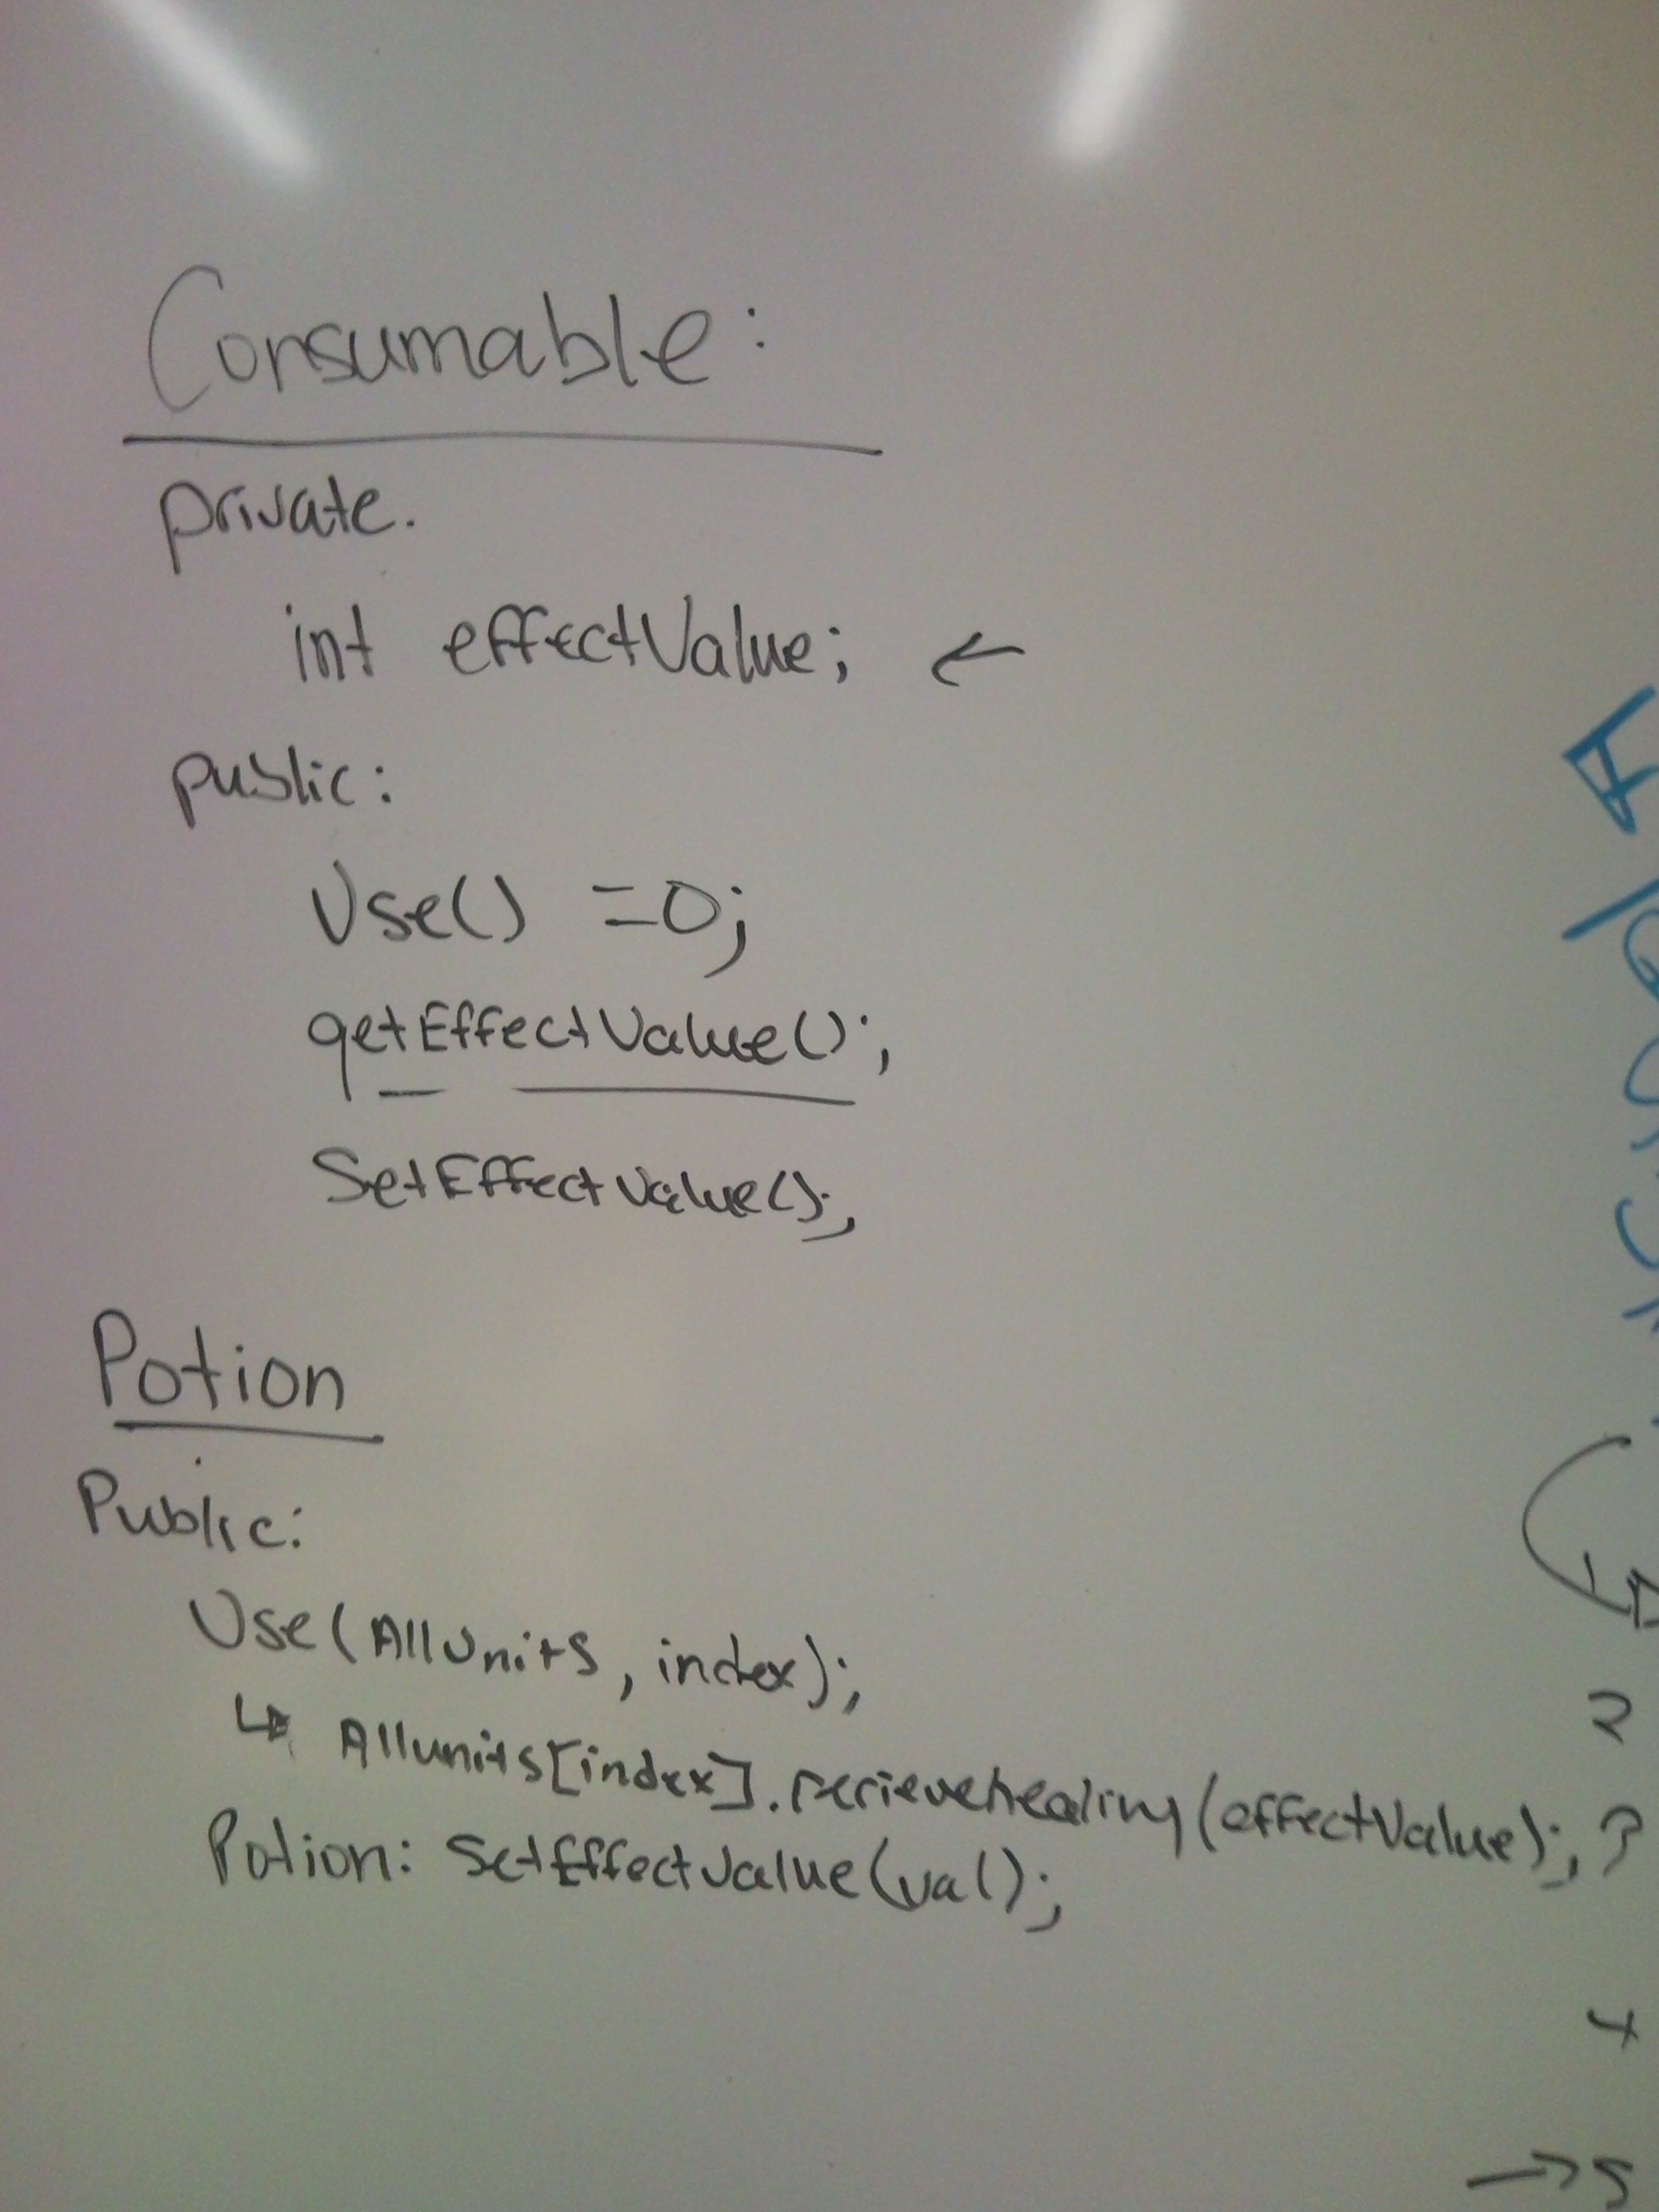 Consumable:
private.
int effectValue; ←
public:
Use() =0;
getEffectValue();
SetEffectValue();
Potion
Public:
Use(AllUnits, index);
↳ Allunits[index].recrievehealing(effectValue);
Potion: SetEffectValue(val);
2
3
4
→5